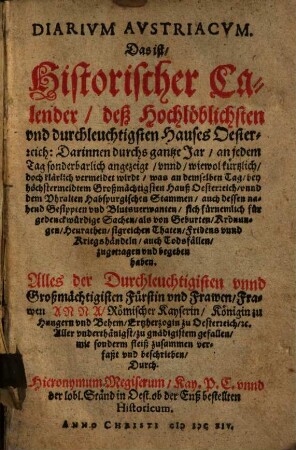 DIARIVM AVSTRIACVM.
Das ist/
Historischer Ca-
lender/ deß Hochlöblichsten
vnd durchleuchtigsten Hauses Oester-
reich: Darinnen durchs gantze Jar/ an jedem
Tag sonderbarlich angezeigt/ vnnd/ wiewol kürtzlich/
doch klärlich vermeldet wirdt/ was an demselben Tag/ bey
höchstermeldtem Großmächtigsten Hauß Oesterreich/ vnnd
dem Vhralten Habspurgischen Stammen/ auch dessen na-
hend Gesippten vnd Blutsverwanten/ sich fürnemlich für
gedenckwürdige Sachen/ als von Geburten/ Krönun-
gen/ Heurathen/ sigreichen Thaten/ Fridens vnnd
Kriegshändeln/ auch Todsfällen/
zugetragen vnd begeben
haben.
Alles der Durchleuchtigisten vnnd
Großmächtigisten Fürstin vnd Frawen/ Fra-
wen ANNA/ Römischer Kayserin/ Königin zu
Hungern vnd Behem/ Ertzherzogin zu Oesterreich/ ꝛc.
Aller vnderthänigst/ zu gnädigistem gefallen/
mit sonderm fleiß zusammen ver-
faßt vnd beschrieben/
Durch
Hieronymum Megiserum/ Kay. P. C. vnnd
der lobl. Ständ in Oest. ob der Enß bestellten
Historicum.
ANNO CHRISTI CIↃ IↃC XIV.